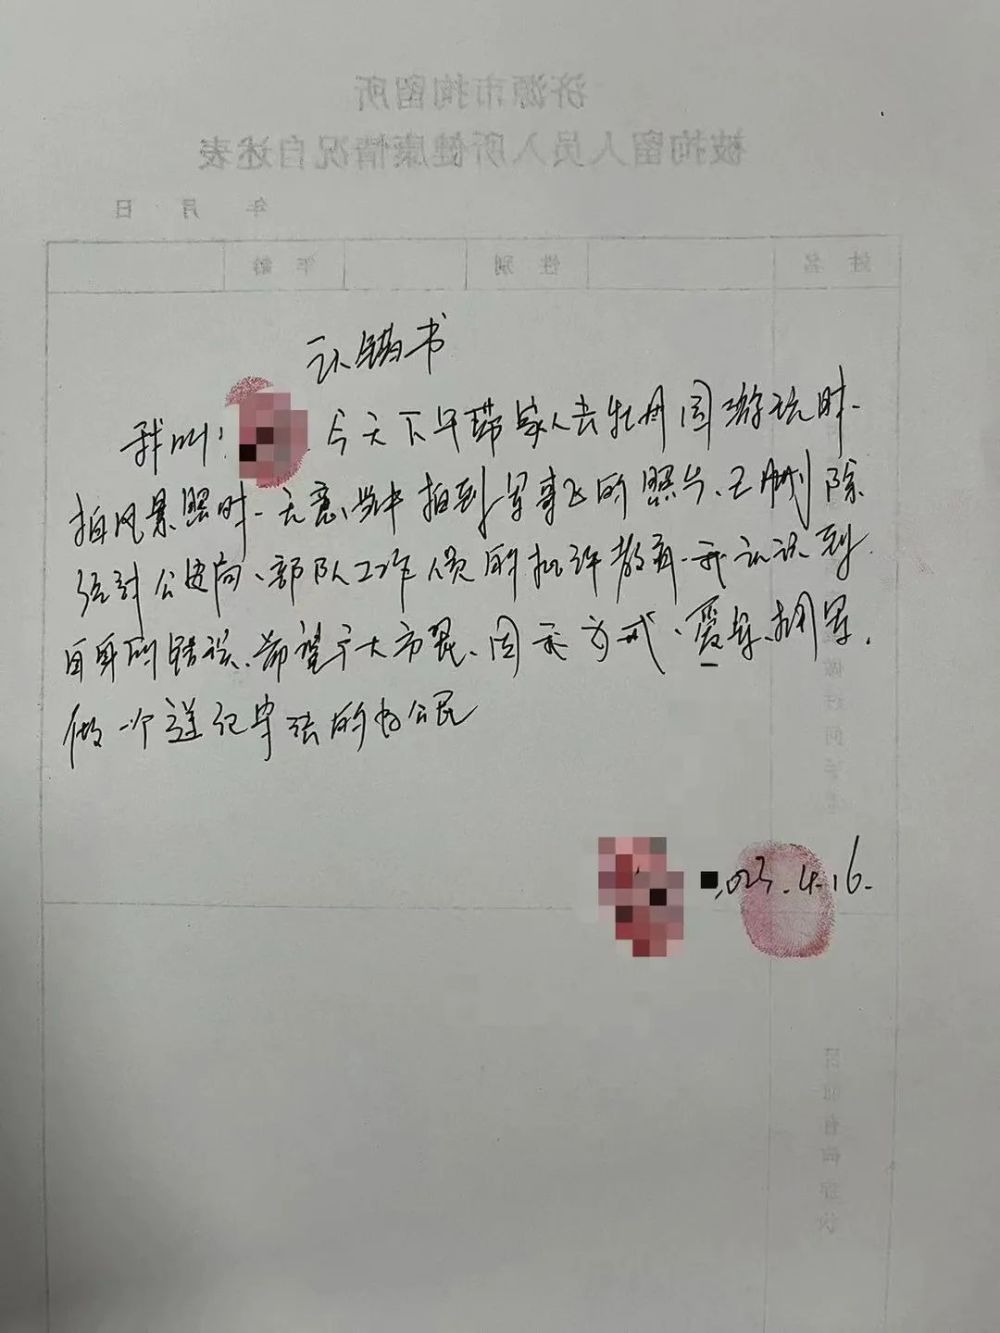 济源市拘留所
被拘留人员入所健康情况自述表
年 月 日
姓名 性别 年龄
认错书
我叫: 今天下午带家人去牡丹园游玩时.
拍风景照时.无意当中拍到军事飞的照片、已删除
经过公安局、部队工作人员的批评教育.我认识到
自身的错误、希望广大市民、因我为戒、爱军、拥军,
做一个遵纪守法的好公民
023.4.16.